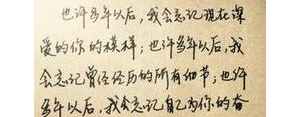 也许多年以后，我会忘记现在深
爱的你的模样；也许多年以后，我
会忘记曾经经历的所有细节；也许
多年以后，我会忘记自己为你的奋